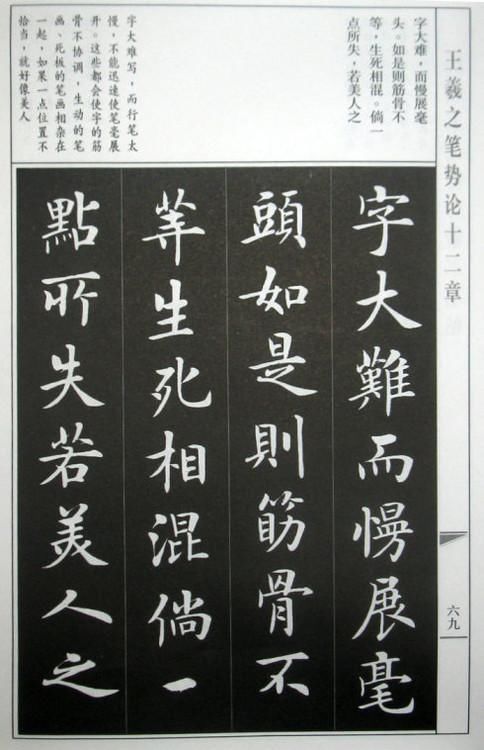 王羲之笔势论十二章
六九
字大难，而慢展毫
头。如是则筋骨不
等，生死相混。倘一
点所失，若美人之
字大难写，而行笔太
慢，不能迅速使笔毫展
开。这些都会使字的筋
骨不协调，生动的笔
画、死板的笔画相杂在
一起，如果一点位置不
恰当，就好像美人
字大難而慢展毫
頭如是則筋骨不
等生死相混倘一
點所失若美人之